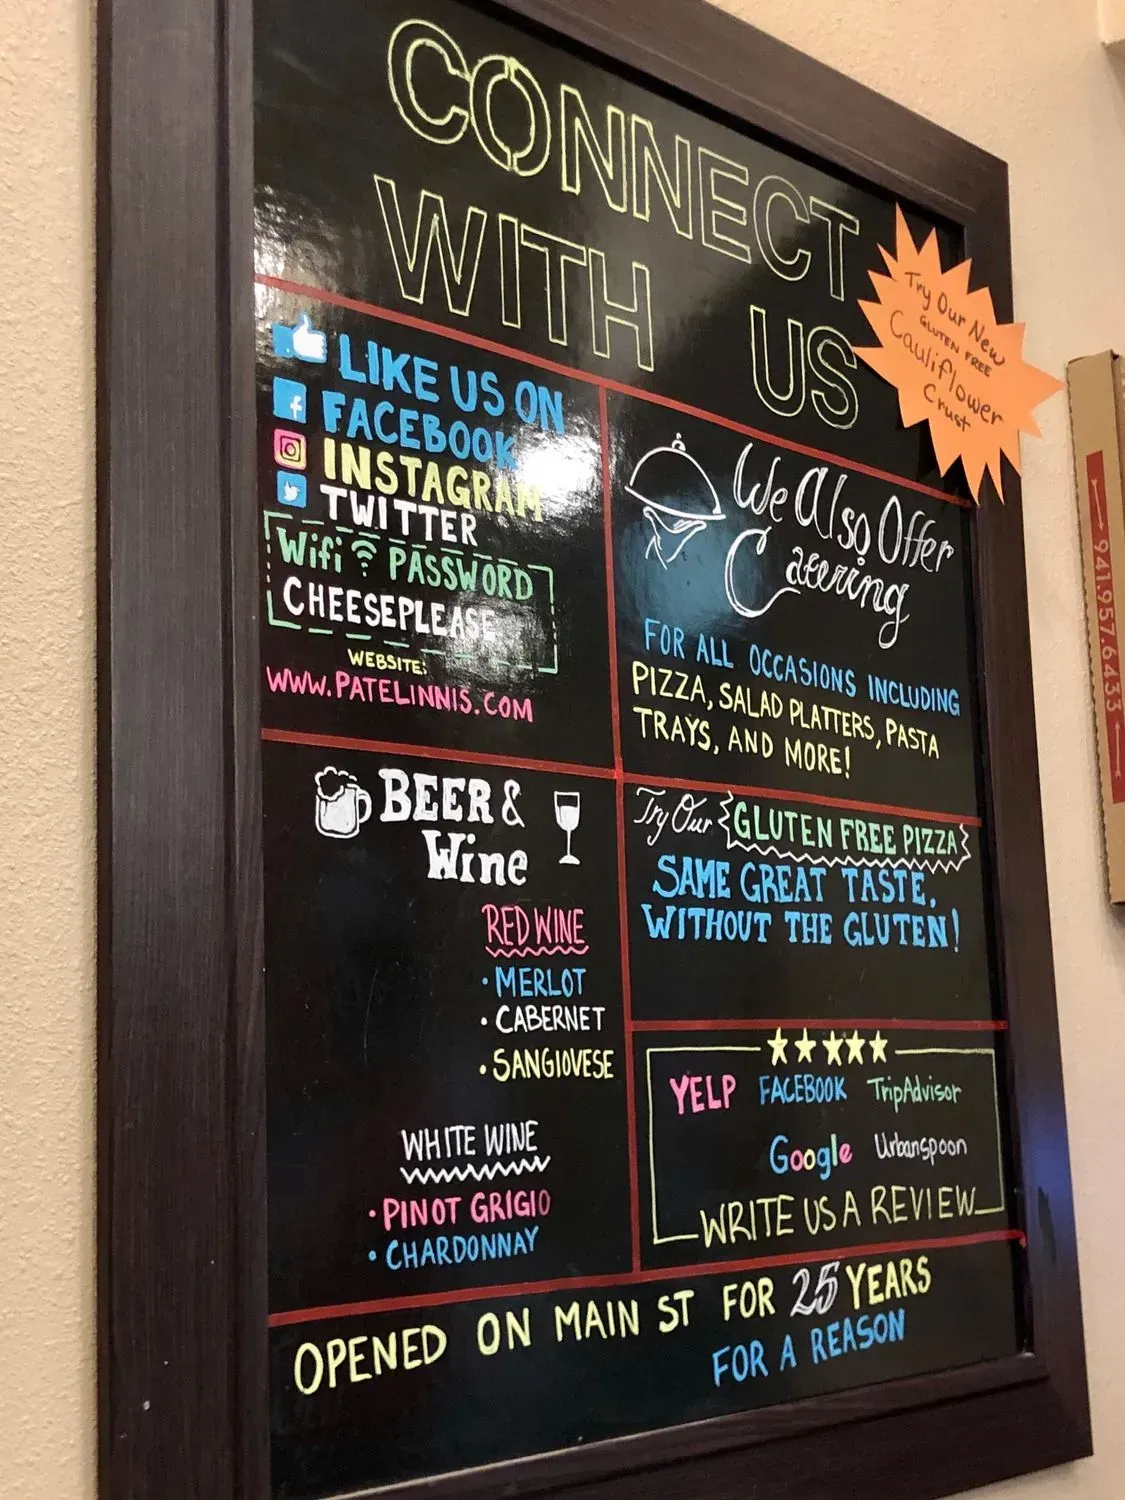 CONNECT
WITH US
Try Our New
GLUTEN FREE
Cauliflower
Crust
LIKE US ON
FACEBOOK
INSTAGRAM
TWITTER
Wifi PASSWORD
CHEESEPLEASE
WEBSITE:
WWW.PATELINNIS.COM
We Also Offer
Catering
FOR ALL OCCASIONS INCLUDING
PIZZA, SALAD PLATTERS, PASTA
TRAYS, AND MORE!
BEER &
Wine
RED WINE
• MERLOT
• CABERNET
• SANGIOVESE
WHITE WINE
• PINOT GRIGIO
• CHARDONNAY
Try Our GLUTEN FREE PIZZA
SAME GREAT TASTE.
WITHOUT THE GLUTEN!
YELP FACEBOOK TripAdvisor
Google Urbanspoon
WRITE US A REVIEW
OPENED ON MAIN ST FOR 25 YEARS
FOR A REASON
941.957.6433